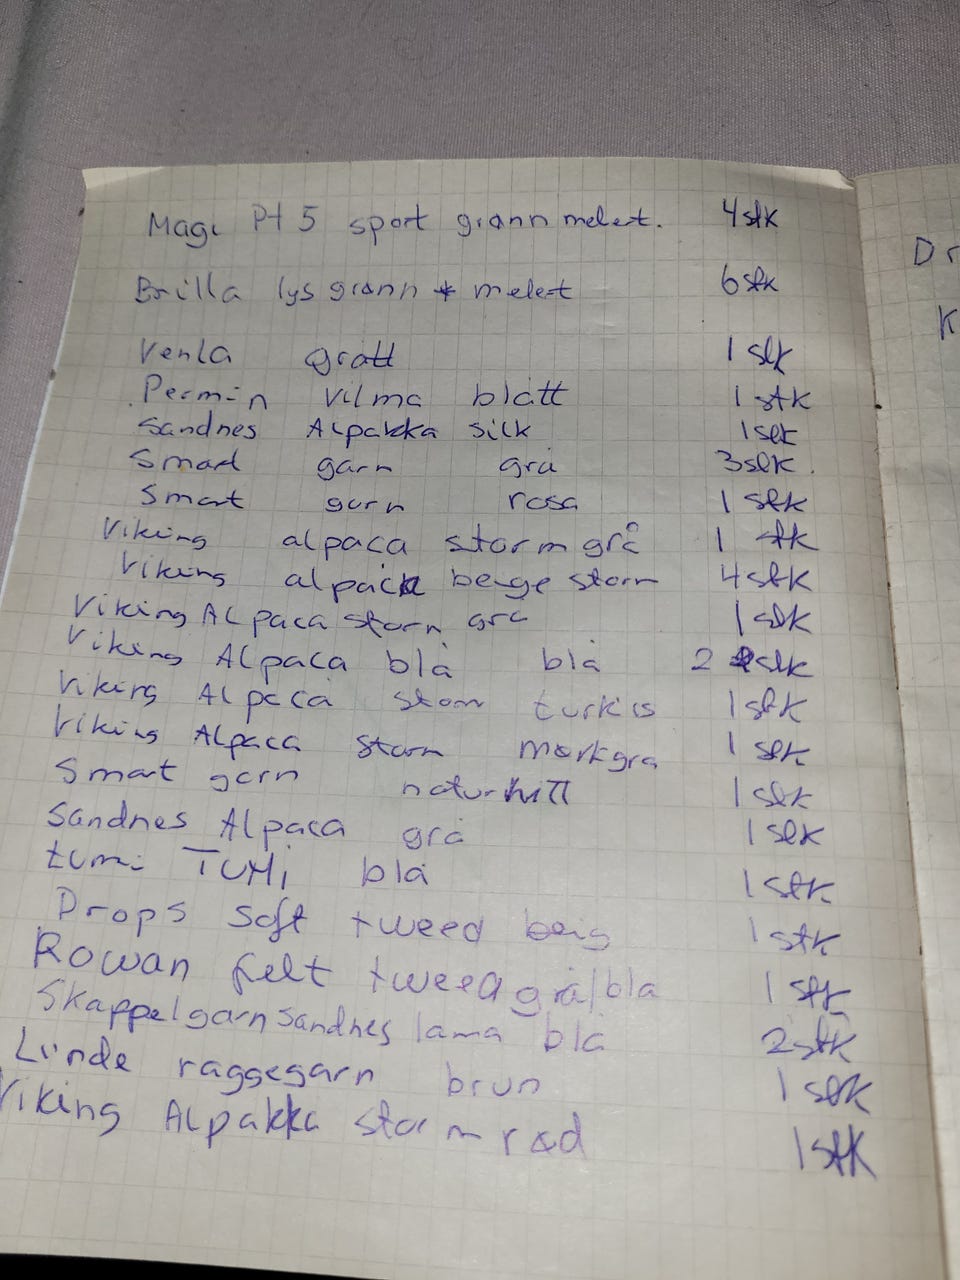 Magi Pt 5 sport grønn melert. 4 stk
Brilla lys grønn * melert 6 stk
Venla grått 1 stk
Permin Vilma blått 1 stk
Sandnes Alpakka silk 1 stk
Smart garn grå 3 stk.
Smart garn rosa 1 stk
Viking alpaca storm grå 1 stk
Viking alpaca beige storm 4 stk
Viking Alpaca storm grå 1 stk
Viking Alpaca blå blå 2 stk
Viking Alpaca storm turkis 1 stk
Viking Alpaca storm mørkgrå 1 stk
Smart garn naturhvitt 1 stk
Sandnes Alpaca grå 1 stk
tumi TUMi blå 1 stk
Drops soft tweed beig 1 stk
Rowan felt tweed grå/blå 1 stk
Skappelgarn Sandnes lama blå 2 stk
Linde raggegarn brun 1 stk
Viking Alpakka storm rød 1 stk
Dr
K